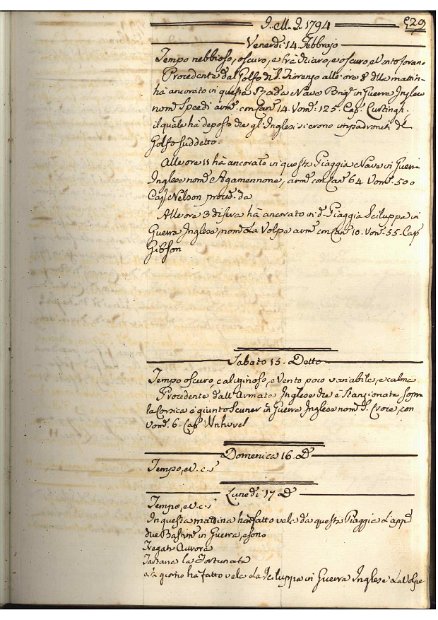 J. M. J. 1794
Venerdi 14 Febbrajo
Tempo nebbioso, oscuro, e
Procedente dal Golfo di S. Fiorenzo alle ore 8 della mattin
hà ancorato in questa Brig in Guerra Inglese
nom: Speedi arm: con Can: 14 Vom: 125. Cap:
il quale hà deposto che gl' Inglesi si erono impadroniti del
Golfo suddetto.
Alle ore 11 hà ancorato in queste Piaggie Nave in Guerra
Inglese nom: Agamennone, arm: con Can: 64 Vom: 50 o
Cap: Nelson proved: da
Alle ore 3 di sera hà ancorato in d: Piaggia Sciluppa in
Guerra Inglese nom: La Volpe arm: con Can: 10. Vom: 55. Cap:
Gibson
Sabato 15. Detto
Tempo oscuro caliginoso, e Vento poco variabile, e calma
Procedente dall' Armata Inglese che è stanzionata sopra
la Corsica è giunto Scuner in Guerra Inglese nom: con
Vom: 6. Cap:
Domenica 16. D:
Tempo, e V: c: s:
Lunedi 17 D:
Tempo, e V: c: s:
In questa mattina hà fatto vela da queste Piaggie
due Bastim: in Guerra, e sono
Fregat: Aurora
Tartana la Fortunata
hà fatto vela La Sciluppa in Guerra Inglese La Volpe